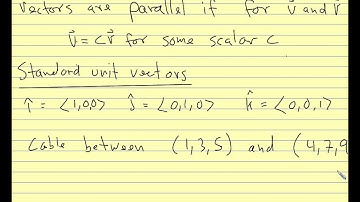 vectors are parallel if for v⃗ and v⃗
v⃗ = cv⃗ for some scalar c
Standard unit vectors
î = ⟨1,0,0⟩ ĵ = ⟨0,1,0⟩ k̂ = ⟨0,0,1⟩
Cable between (1,3,5) and (4,7,9